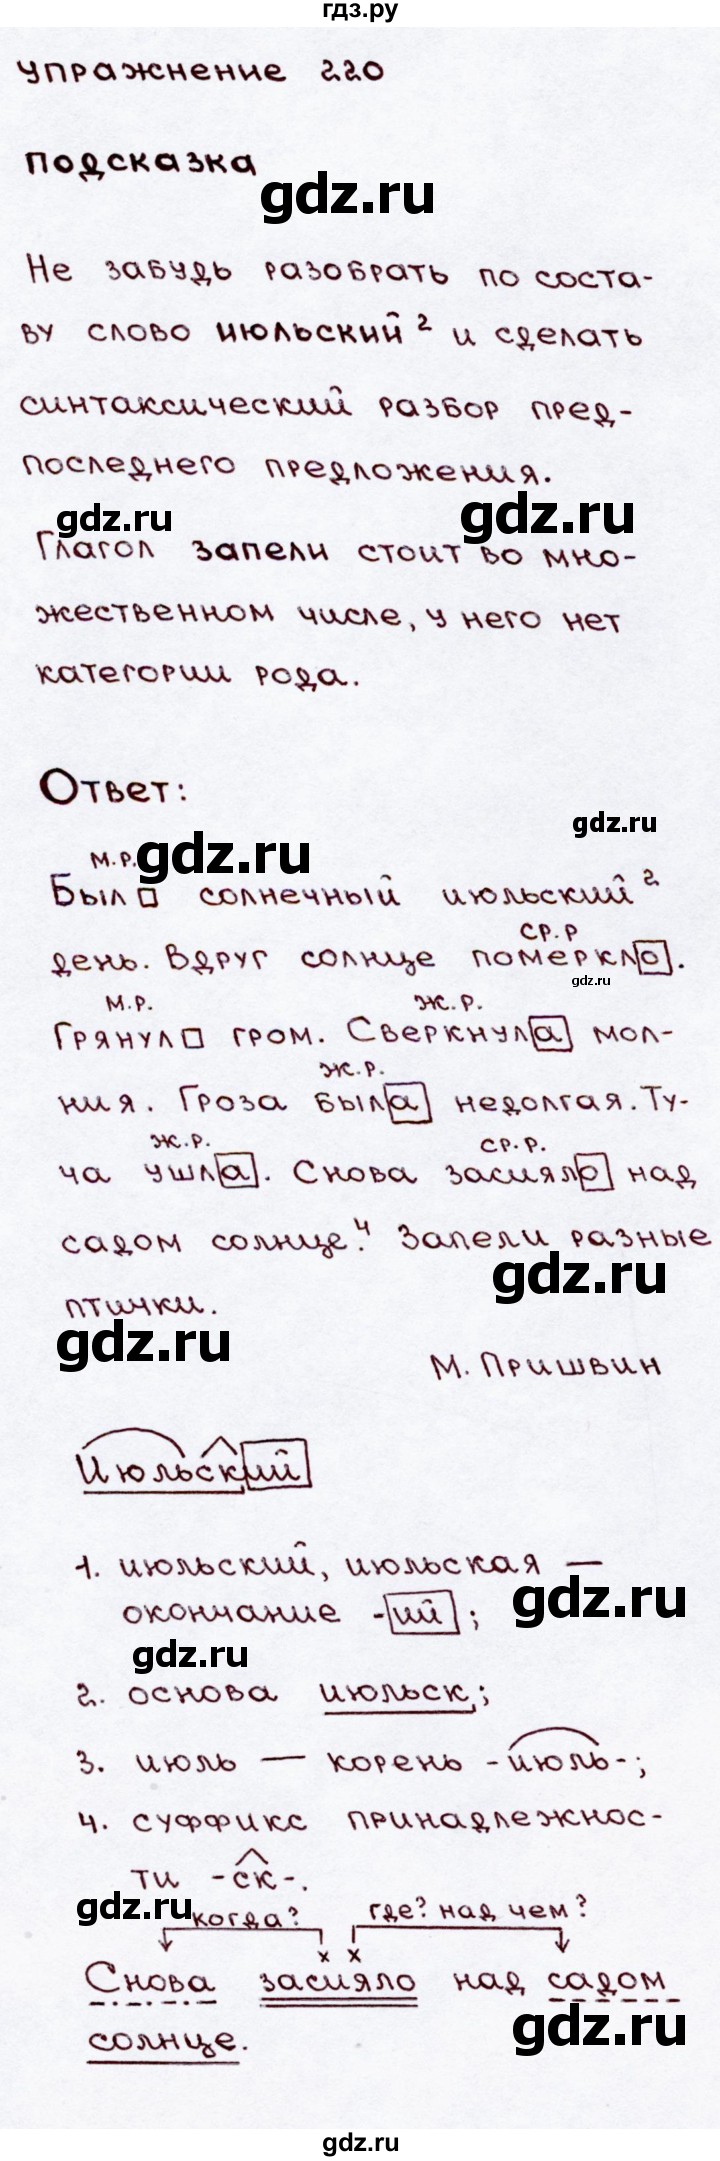 гдз.ру
упражнение 220
подсказка
gdz.ru
Не забудь разобрать по соста-
ву слово июльский² и сделать
синтаксический разбор пред-
последнего предложения.
gdz.ru
gdz.ru
Глагол запели стоит во мно-
жественном числе, у него нет
категории рода.
Ответ:
gdz.ru
м.р.
gdz.ru
Был солнечный июльский²
ср.р
день. Вдруг солнце померкло.
gdz.ru
м.р. ж.р.
Грянул гром. Сверкнула мол-
ж.р.
ния. Гроза была недолгая. Ту-
ж.р. ср.р.
ча ушла. Снова засияло над
садом солнце.⁴ Запели разные
gdz.ru
птички.
gdz.ru
М. Пришвин
Июльский
1. июльский, июльская —
gdz.ru
окончание -ий;
gdz.ru
2. основа июльск;
3. июль — корень -июль-;
4. суффикс принадлежнос-
ти -ск-.
gdz.ru
когда? где? над чем?
х х
Снова засияло над садом
gdz.ru
солнце.
gdz.ru